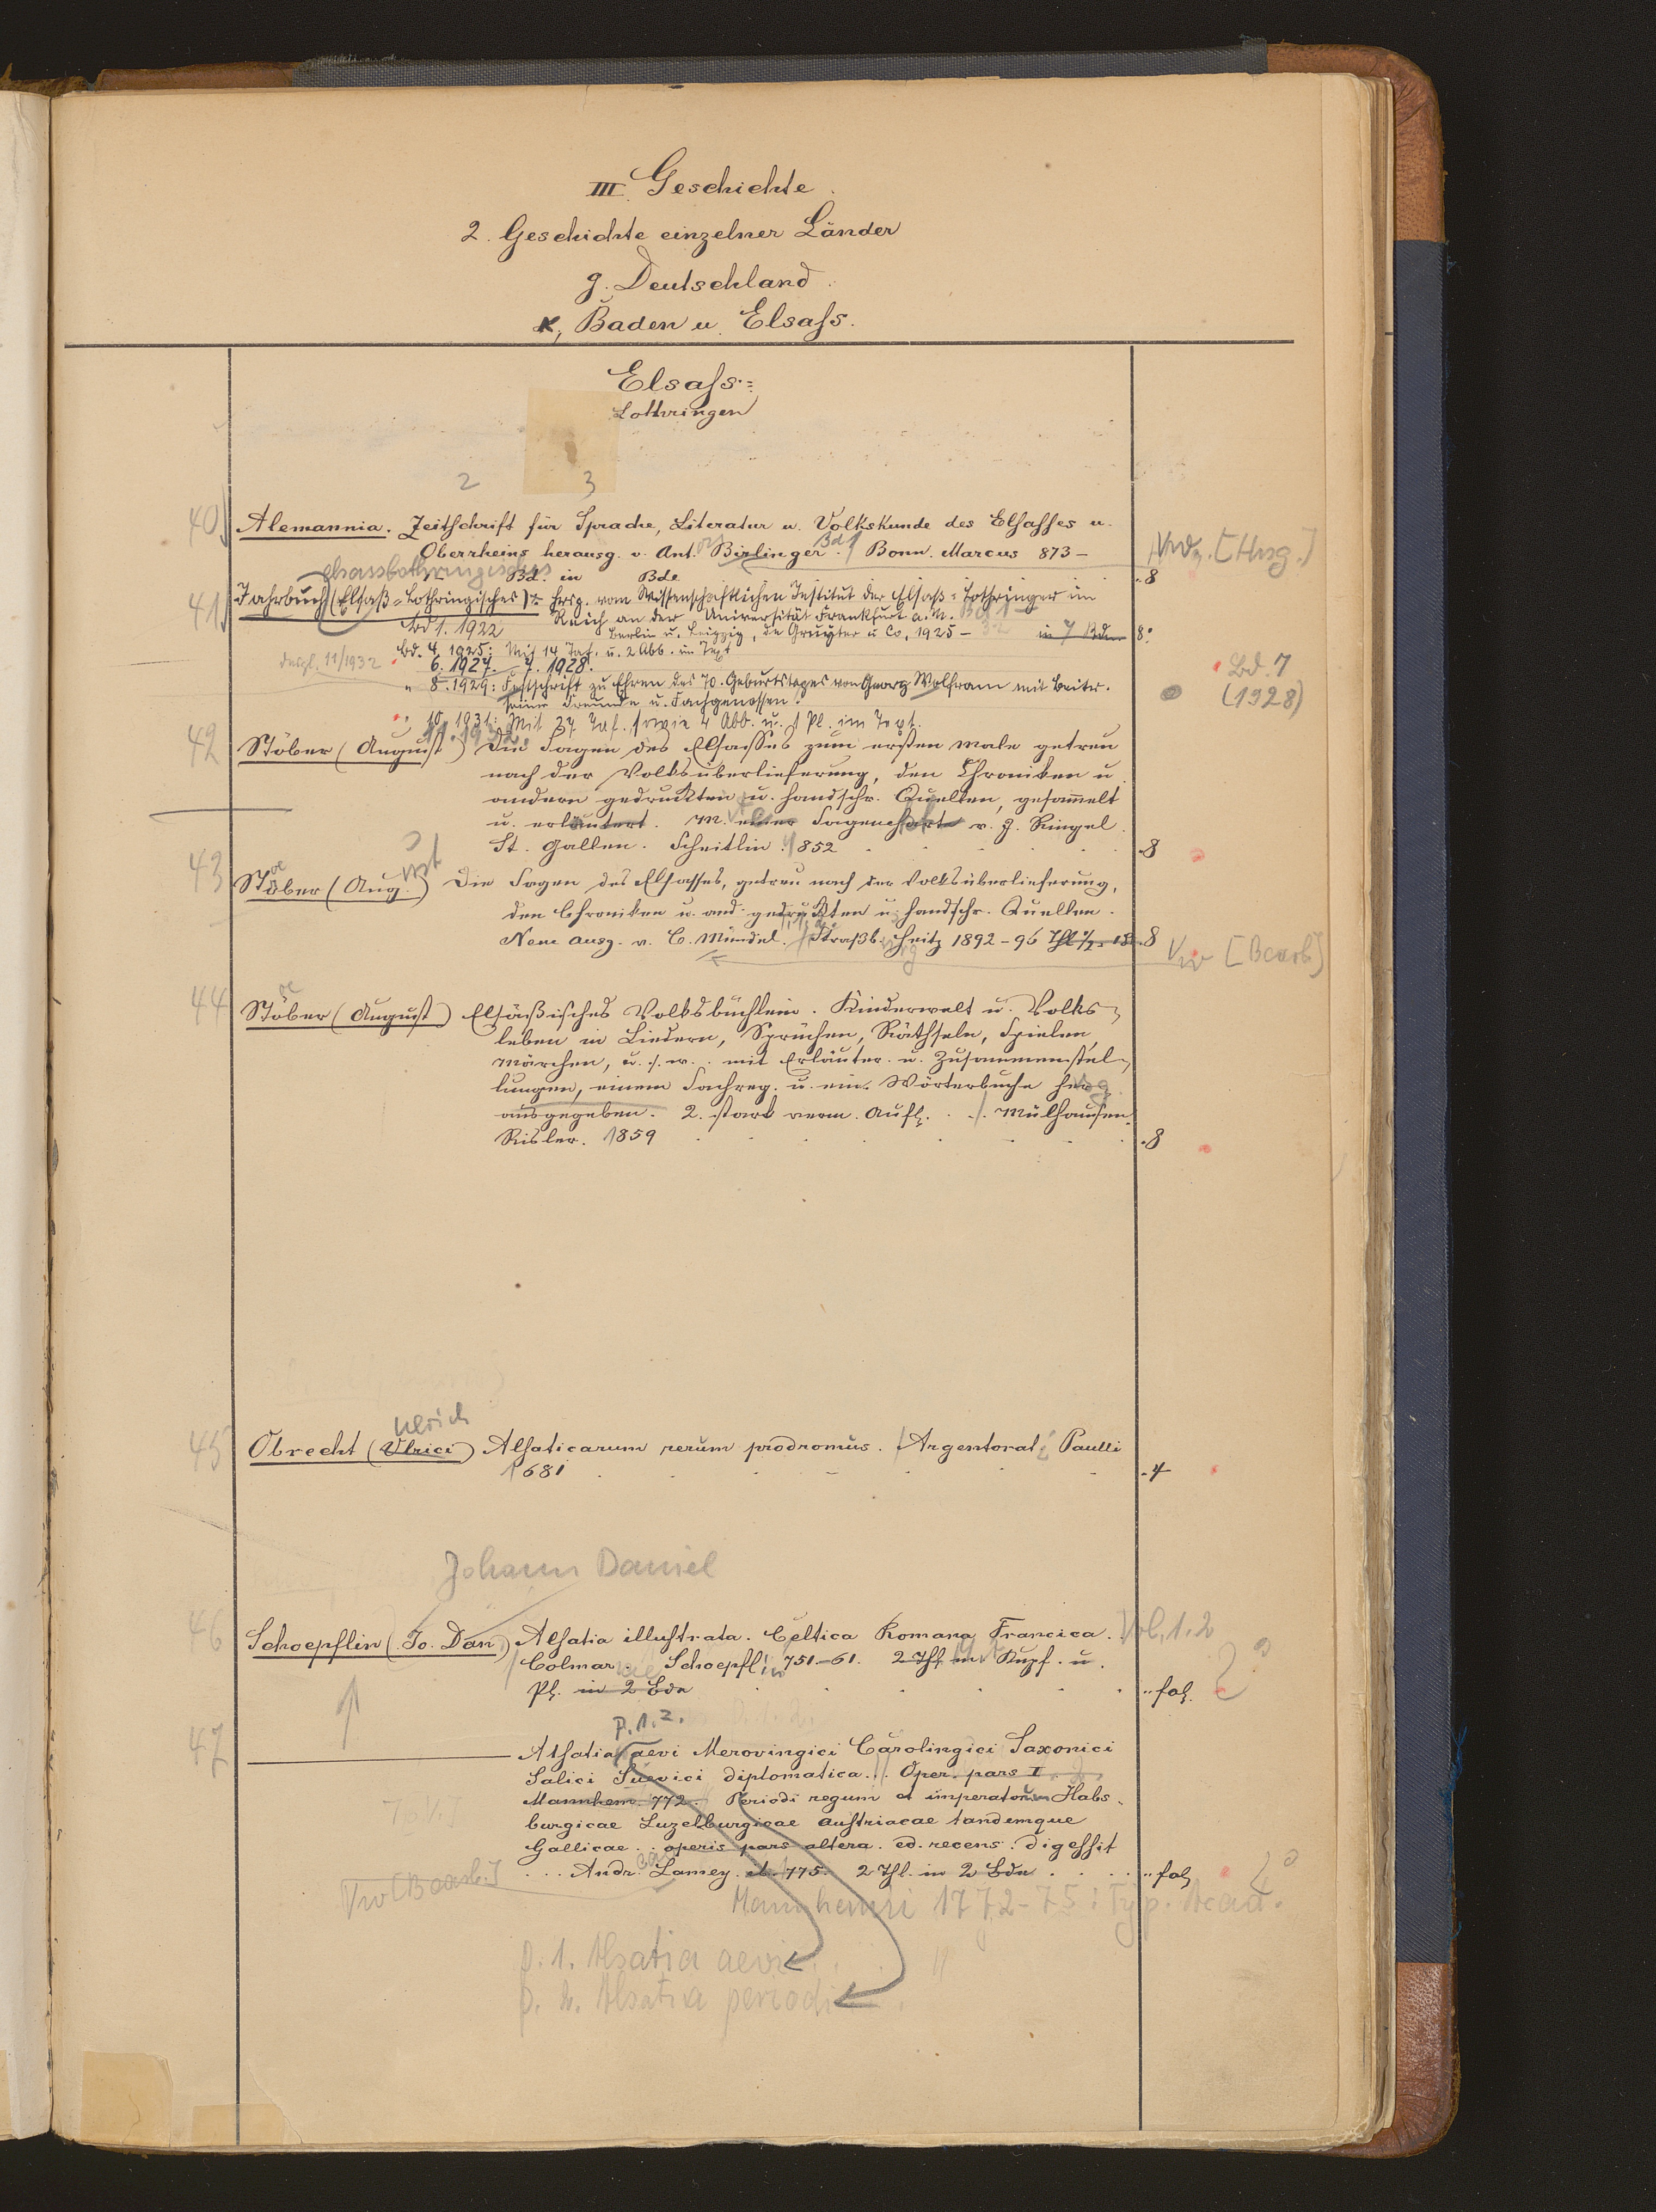 III. Geschichte.
2. Geschichte einzelner Länder
g. Deutschland.
K, Baden u. Elsass.
Elsass-=
Lothringen
2 3
40 Alemannia. Zeitschrift für Sprache, Literatur u. Volkskunde des Elsasses u.
Oberrheins herausg. v. Ant. Birlinger. Bd 1 Bonn. Marcus 873-
Vw. [Hrsg.]
Bd. in Bde 8
elsasslothringisches
41 Jahrbuch (Elsaß-Lothringisches) hrsg. vom Wissenschaftlichen Institut der Elsaß-Lothringer im
Reich an der Universität Frankfurt a. M. Bd 1-
Bd 1. 1922 Berlin u. Leipzig, de Gruyter u. Co, 1925-32 in 7 Bden 8°
Bd. 4. 1925: Mit 14 Taf. u. 2 Abb. im Text
desgl. 11/1932 6. 1927. 7. 1928.
Bd. 7
(1928)
" 8. 1929: Festschrift zu Ehren des 70. Geburtstages von Georg Wolfram mit Beitr.
seiner Freunde u. Fachgenossen.
" 10. 1931: Mit 37 Taf. sowie 4 Abb. u. 1 Pl. im Text.
11. 1932.
42 Stöber (August) Die Sagen des Elsasses zum ersten male getreu
nach der Volksüberlieferung, den Chroniken u.
andern gedruckten u. handschr. Quellen, gesammelt
u. erläutert. M. einer Sagencharte v. J. Ringel.
St. Gallen. Scheitlin 1852 8
43 Stöber (Aug.) ust Die Sagen des Elsasses, getreu nach der Volksüberlieferung,
den Chroniken u. and. gedruckten u. handschr. Quellen.
Neue Ausg. v. C. Mündel. Straßb. Heitz 1892-96 Thl 1/2 8
Vw [Bearb.]
44 Stöber (August) Elsäßisches Volksbüchlein. Kinderwelt u. Volks-
leben in Liedern, Sprüchen, Räthseln, Spielen,
Märchen, u. s. w. mit Erläuter. u. Zusammenstel-
lungen, einem Sachreg. u. ein. Wörterbuche her-
ausgegeben. 2. stark verm. Aufl. Mülhausen.
Risler. 1859 8
Ulrich
45 Obrecht (Ulrici) Alsaticarum rerum prodromus. Argentorati Paulli
1681 4
Johann Daniel
46 Schoepflin (Jo. Dan.) Alsatia illustrata. Celtica Romana Francica. Vol. 1.2
Colmar. Schoepflin 751-61. 2 Thl. m. Kupf. u.
Pl. in 2 Bde fol. 2°
P. 1. 2.
47 Alsatia aevi Merovingici Carolingici Saxonici
Salici Suevici diplomatica... Oper. pars I.
Mannhem. 772. Periodi regum et imperatorum Habs-
burgicae Luzelburgicae Austriacae tandemque
Gallicae. operis pars altera. ed. recens. digessit
... Andr. Lamey. ib. 775. 2 Thl. in 2 Bde fol. 2°
Vw [Bearb.]
Mannhemii 1772-75: Typ. Acad.
P. 1. Alsatia aevi
P. 2. Alsatia periodi